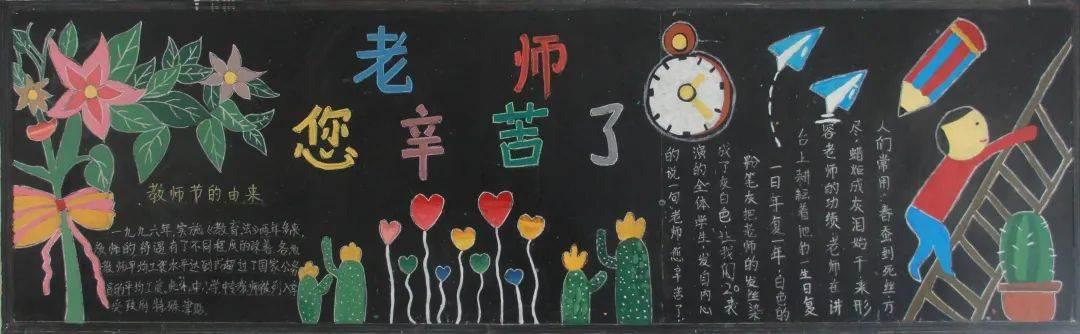 老师
您辛苦了
教师节的由来
一九九六年实施《教育法》两年多来
教师的待遇有了不同程度的改善。各
教师平均工资水平达到或超过了国家公务
的平均工资
受政府特殊津贴
人们常用:春蚕到死丝方
尽 蜡炬成灰泪始干来形
容老师的功绩 老师在讲
台上耕耘着他的一生日复
一日年复一年,白色的
粉笔灰把老师的发丝染
成了灰白色 让我们20表
演的全体学生,发自内心
的说一句:老师 您辛苦了!